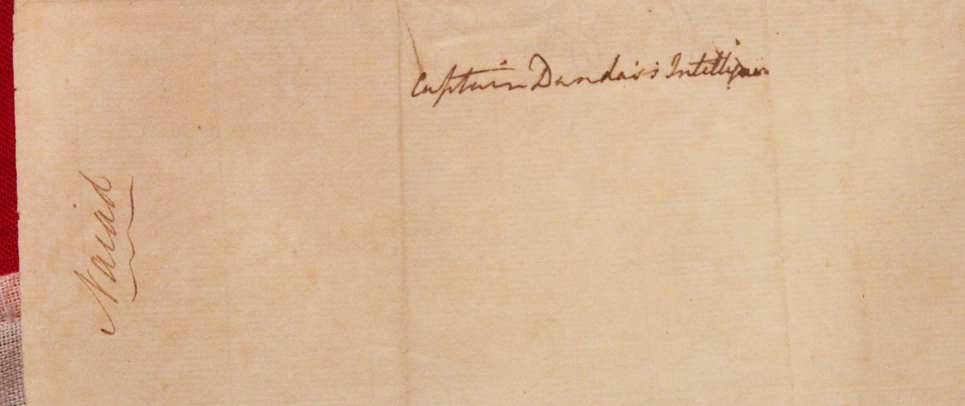 Captain Dundas's Intelligence
Naiad